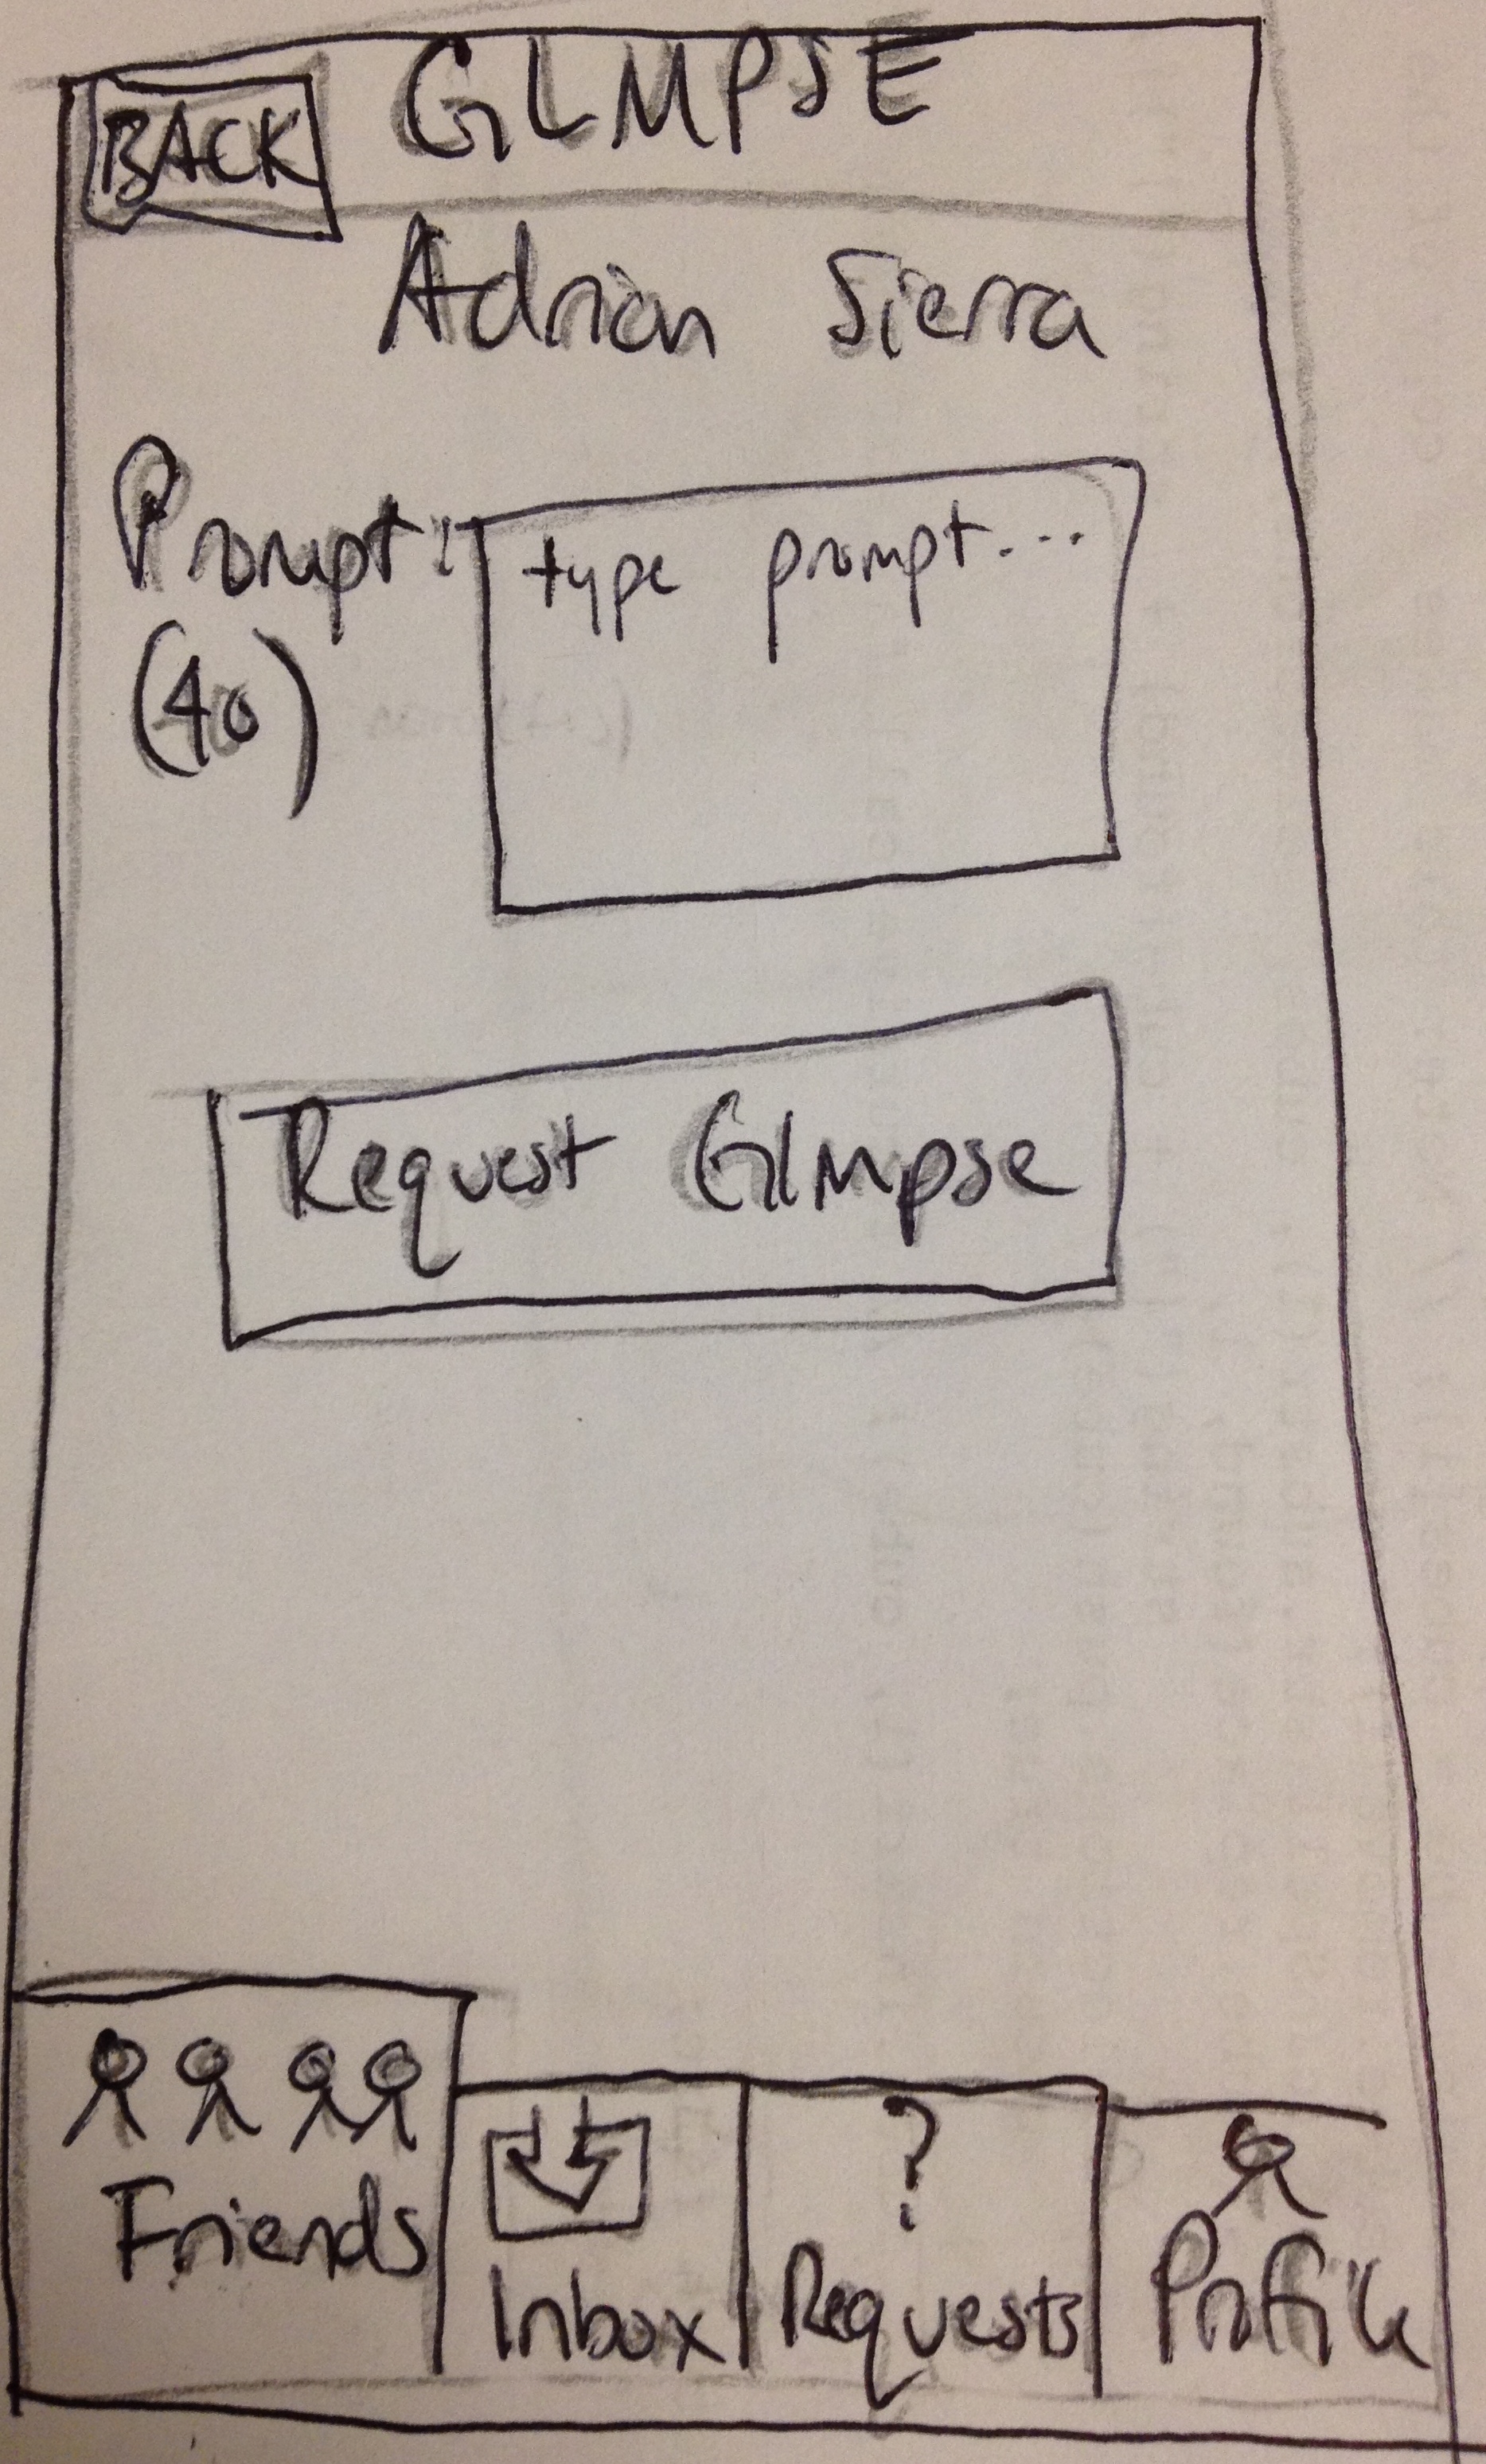 BACK GLMPSE
Adrian Sierra
Prompt: type prompt...
(40)
Request Glmpse
Friends Inbox ? Requests Profile